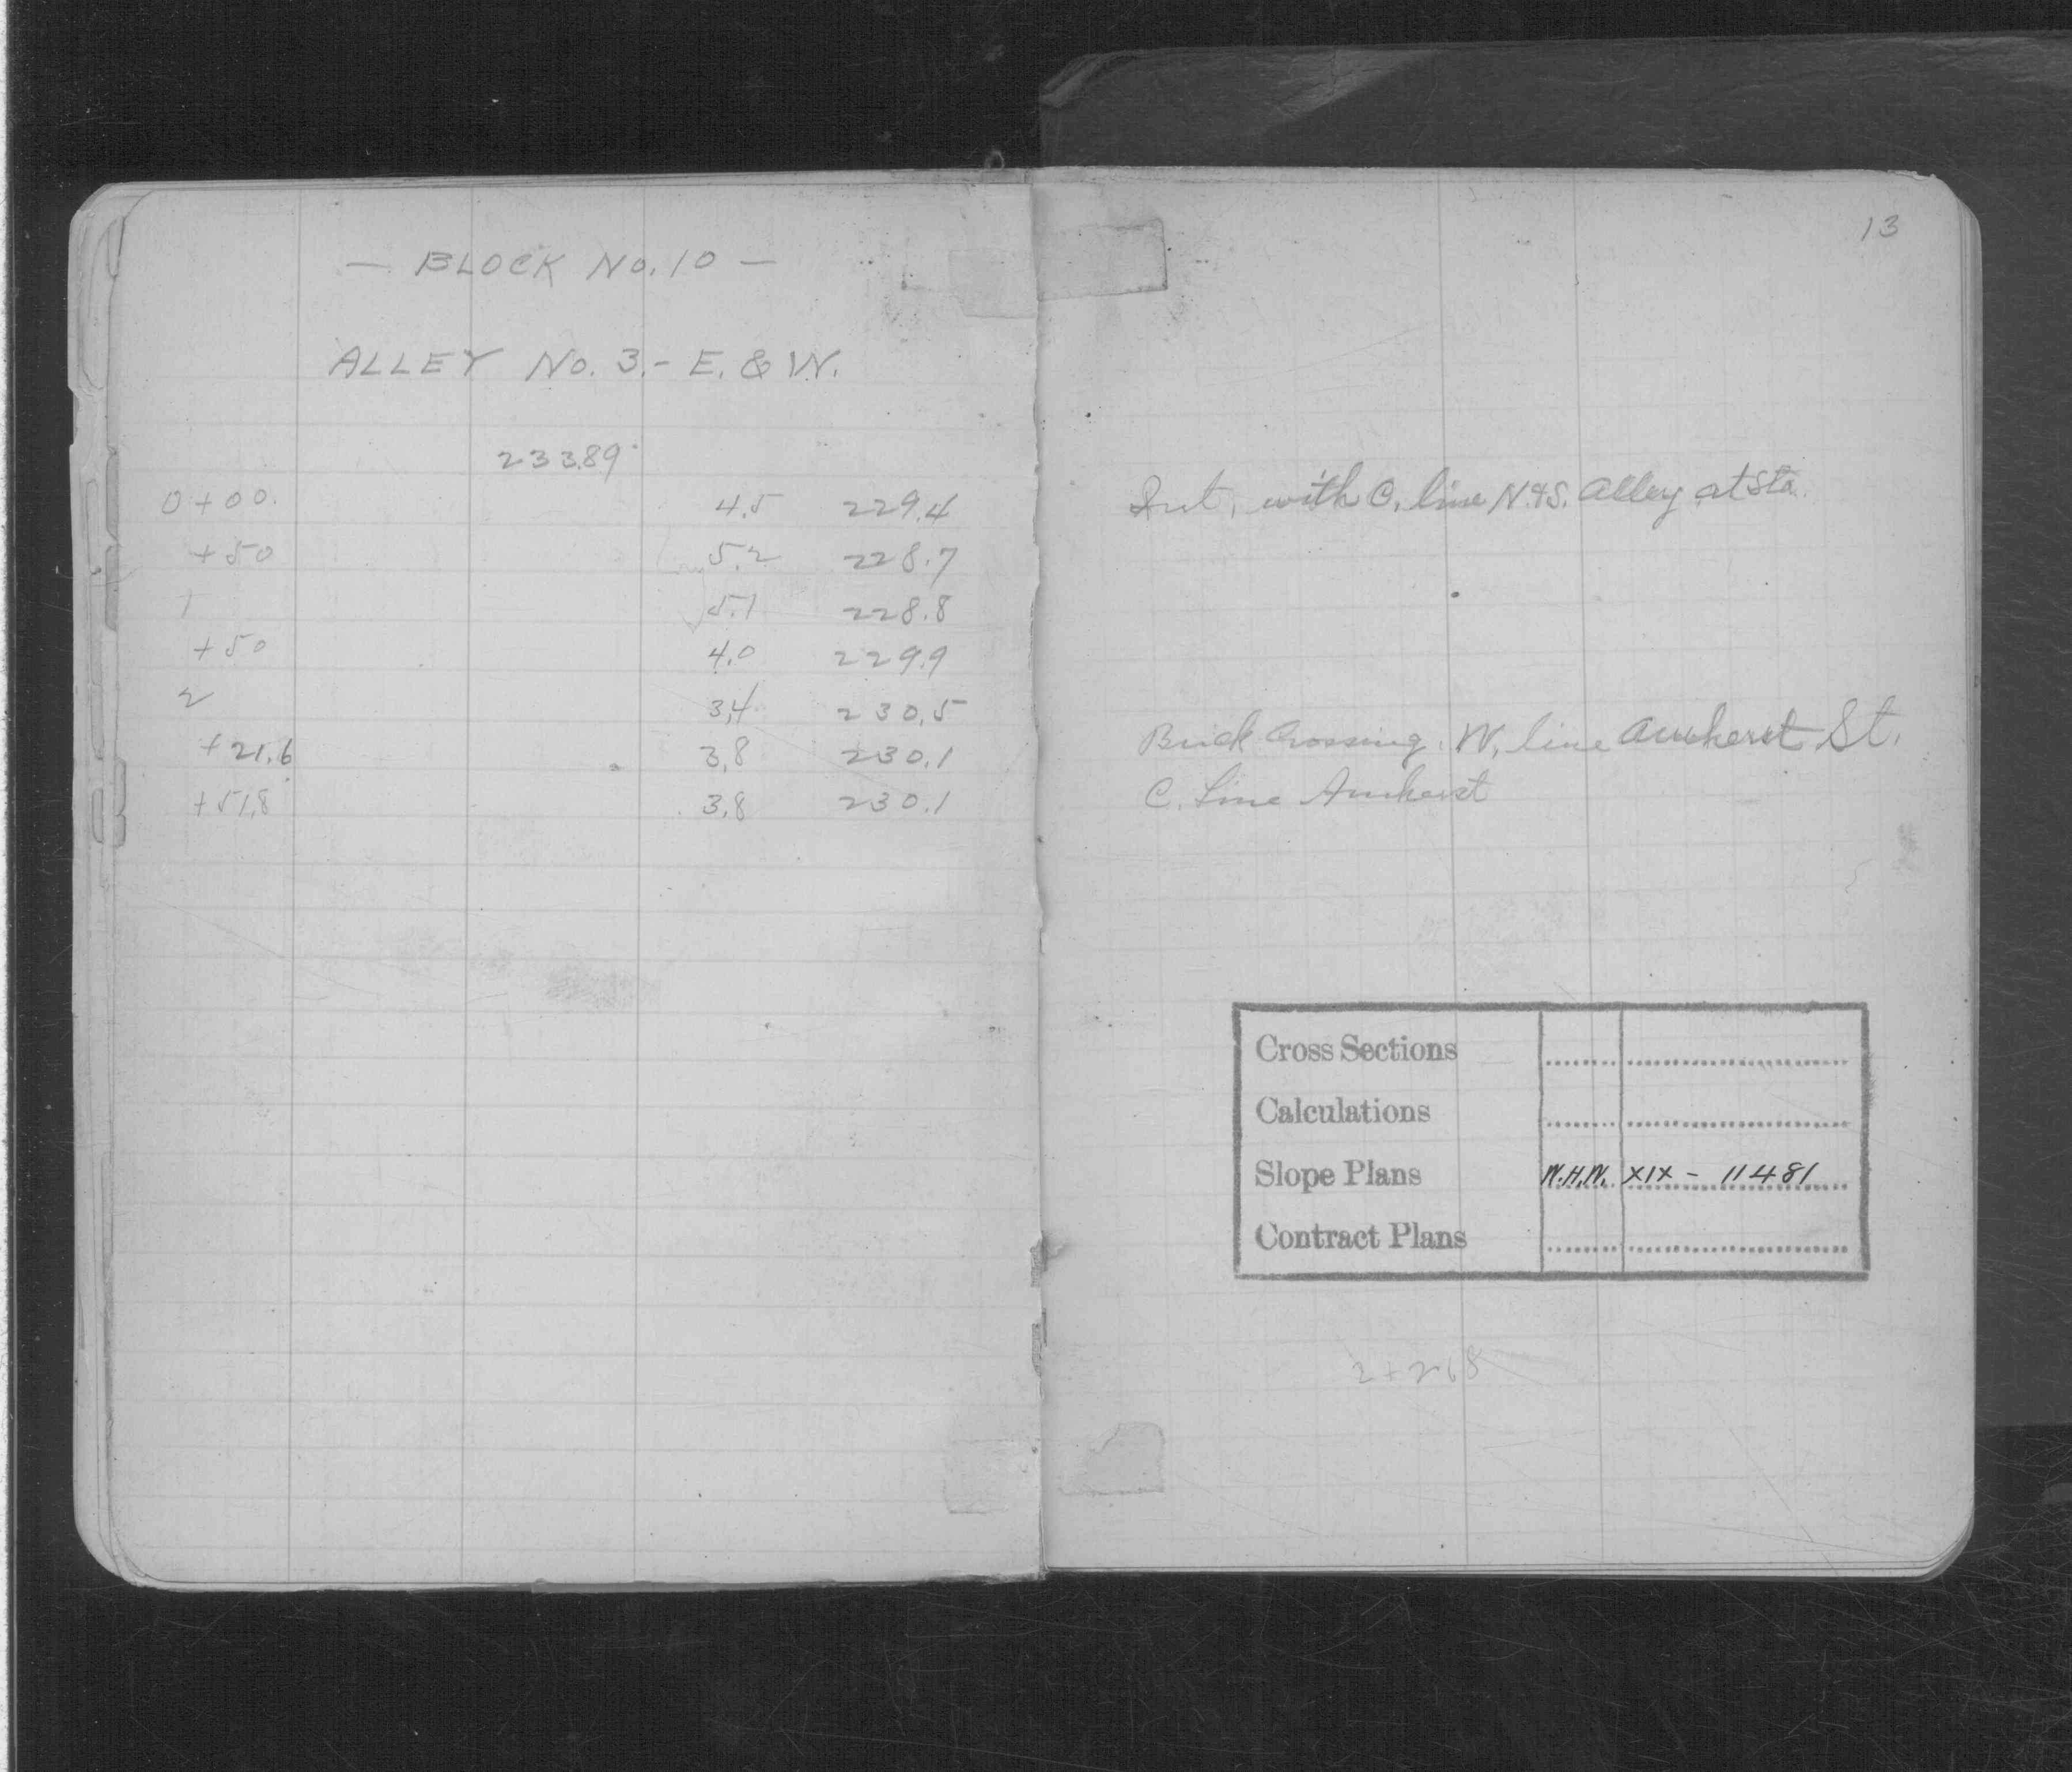 — BLOCK No. 10 —
ALLEY No. 3.- E. & W.
233.89
0+00. 4.5 229.4
+50 5.2 228.7
1 5.1 228.8
+50 4.0 229.9
2 3.4 230.5
+21.6 3.8 230.1
+51.8 3.8 230.1
13
Int. with C. line N.&S. Alley at Sta.
Brick Crossing. W. line Amherst St.
C. Line Amherst
Cross Sections
Calculations
Slope Plans W.H.W. XIX - 11481
Contract Plans